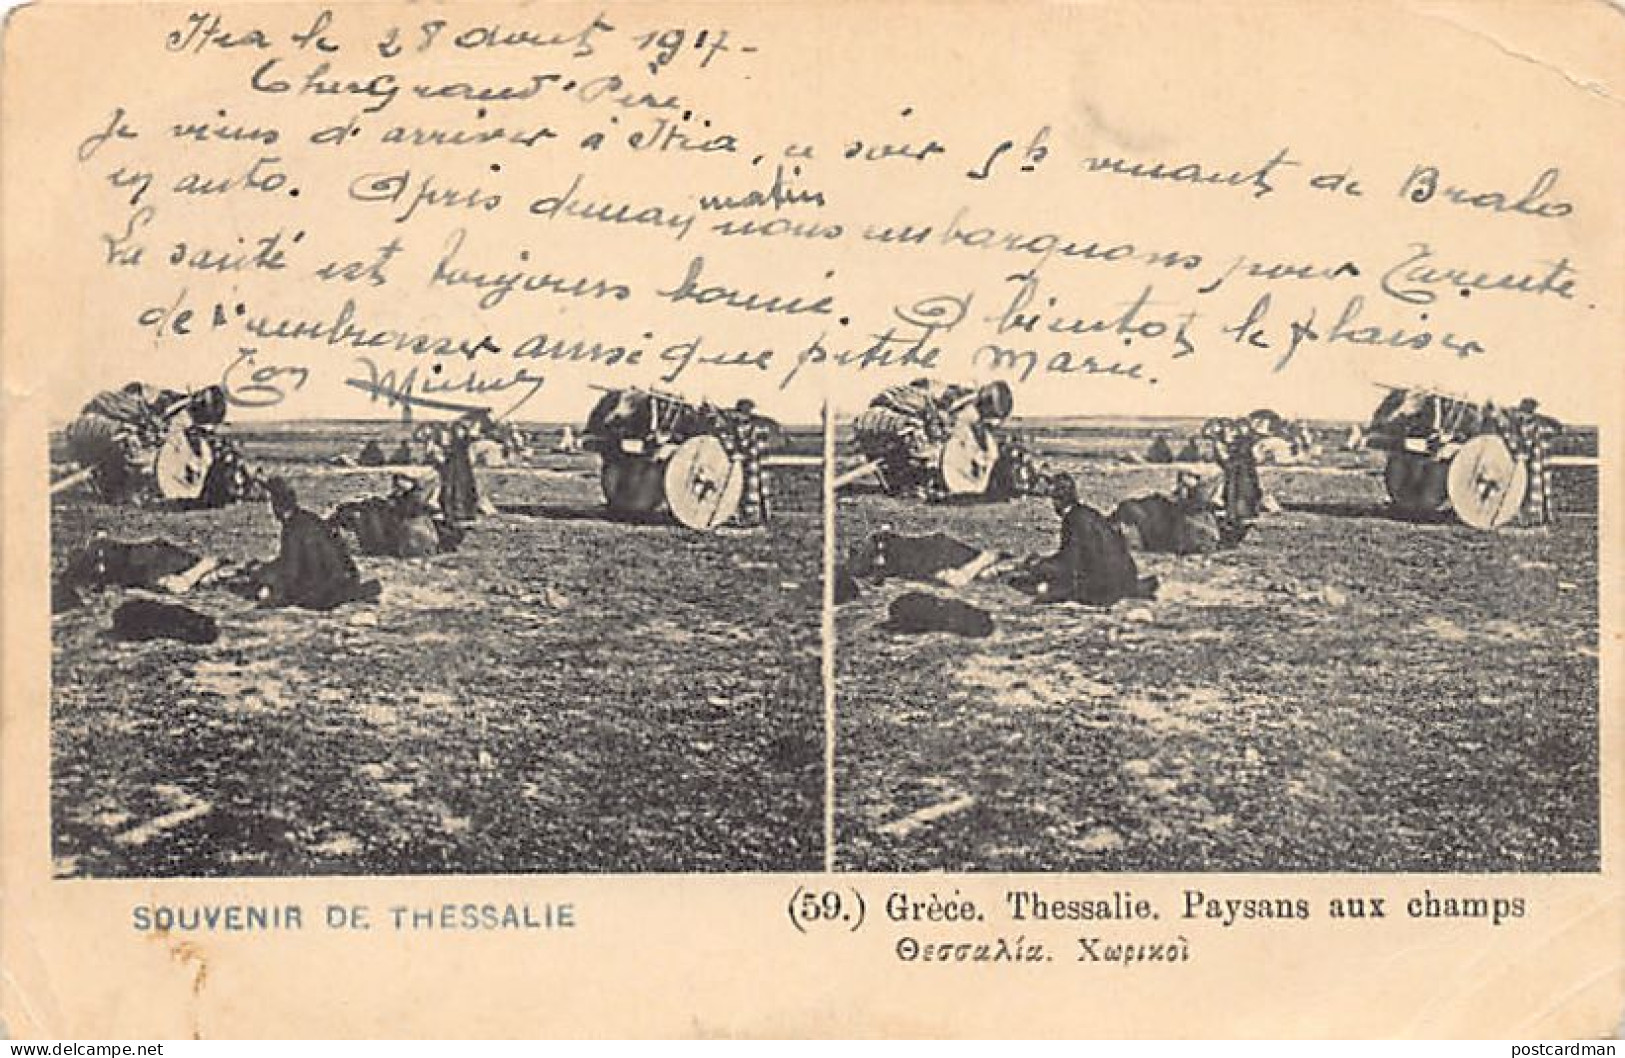 Itea le 28 aout 1917-
Cher Grand'Père.
Je viens d'arriver à Itéa, ce soir 5h venant de Bralo
en auto. Après demain matin nous embarquons pour Tarente.
La santé est toujours bonne. A bientot le plaisir
de t'embrasser ainsi que petite Marie.
Ton
SOUVENIR DE THESSALIE
(59.) Grèce. Thessalie. Paysans aux champs
Θεσσαλία. Χωρικοὶ
postcardman